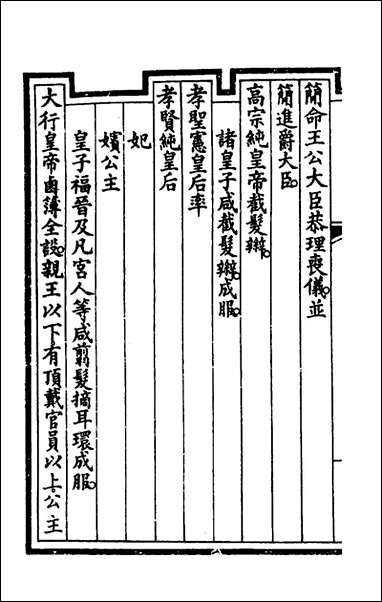 簡命王公大臣恭理喪儀。並
簡進爵大臣。
高宗純皇帝截髮辮。
諸皇子咸截髮辮。成服。
孝聖憲皇后率
孝賢純皇后
妃
嬪公主
皇子福晉及凡宮人等咸翦髮摘耳環成服。
大行皇帝鹵簿全設。親王以下。有頂戴官員以上。公主